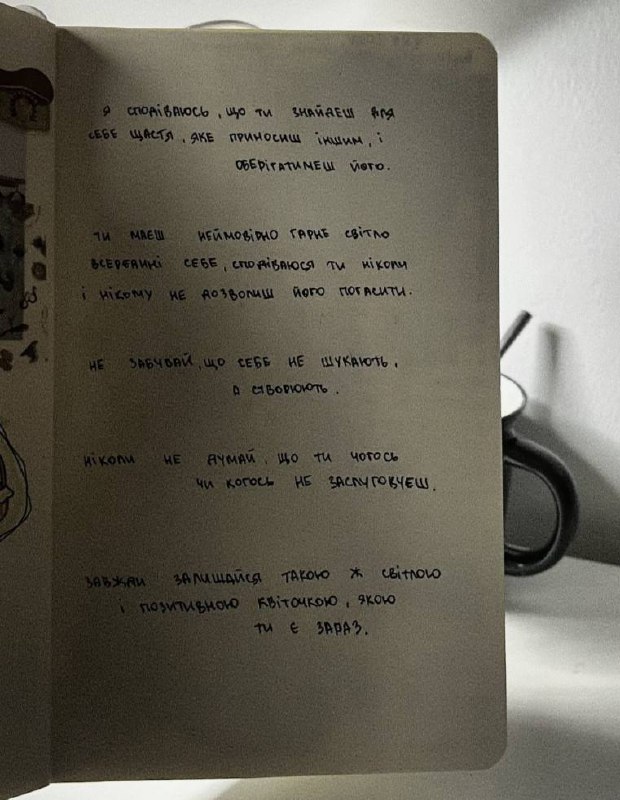 Я СПОДІВАЮСЬ, ЩО ТИ ЗНАЙДЕШ ДЛЯ
СЕБЕ ЩАСТЯ, ЯКЕ ПРИНОСИШ ІНШИМ, І
ОБЕРІГАТИМЕШ ЙОГО.
ТИ МАЄШ НЕЙМОВІРНО ГАРНЕ СВІТЛО
ВСЕРЕДИНІ СЕБЕ, СПОДІВАЮСЯ ТИ НІКОЛИ
І НІКОМУ НЕ ДОЗВОЛИШ ЙОГО ПОГАСИТИ.
НЕ ЗАБУВАЙ, ЩО СЕБЕ НЕ ШУКАЮТЬ,
А СТВОРЮЮТЬ.
НІКОЛИ НЕ ДУМАЙ, ЩО ТИ ЧОГОСЬ
ЧИ КОГОСЬ НЕ ЗАСЛУГОВУЄШ.
ЗАВЖДИ ЗАЛИШАЙСЯ ТАКОЮ Ж СВІТЛОЮ
І ПОЗИТИВНОЮ КВІТОЧКОЮ, ЯКОЮ
ТИ Є ЗАРАЗ.